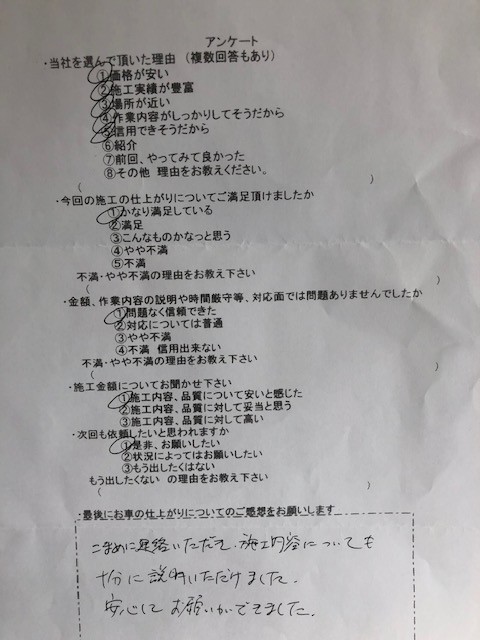 アンケート
・当社を選んで頂いた理由 (複数回答もあり)
①価格が安い
②施工実績が豊富
③場所が近い
④作業内容がしっかりしてそうだから
⑤信用できそうだから
⑥紹介
⑦前回、やってみて良かった
⑧その他 理由をお教えください。
( )
・今回の施工の仕上がりについてご満足頂けましたか
①かなり満足している
②満足
③こんなものかなっと思う
④やや不満
⑤不満
不満・やや不満の理由をお教え下さい
( )
・金額、作業内容の説明や時間厳守等、対応面では問題ありませんでしたか
①問題なく信頼できた
②対応については普通
③やや不満
④不満 信用出来ない
不満・やや不満の理由をお教え下さい
( )
・施工金額についてお聞かせ下さい
①施工内容、品質について安いと感じた
②施工内容、品質に対して妥当と思う
③施工内容、品質に対して高い
・次回も依頼したいと思われますか
①是非、お願いしたい
②状況によってはお願いしたい
③もう出したくはない
もう出したくない の理由をお教え下さい
( )
・最後にお車の仕上がりについてのご感想をお願いします
こまめに連絡いただき、施工内容についても
十分に説明いただけました。
安心して お願いができました。